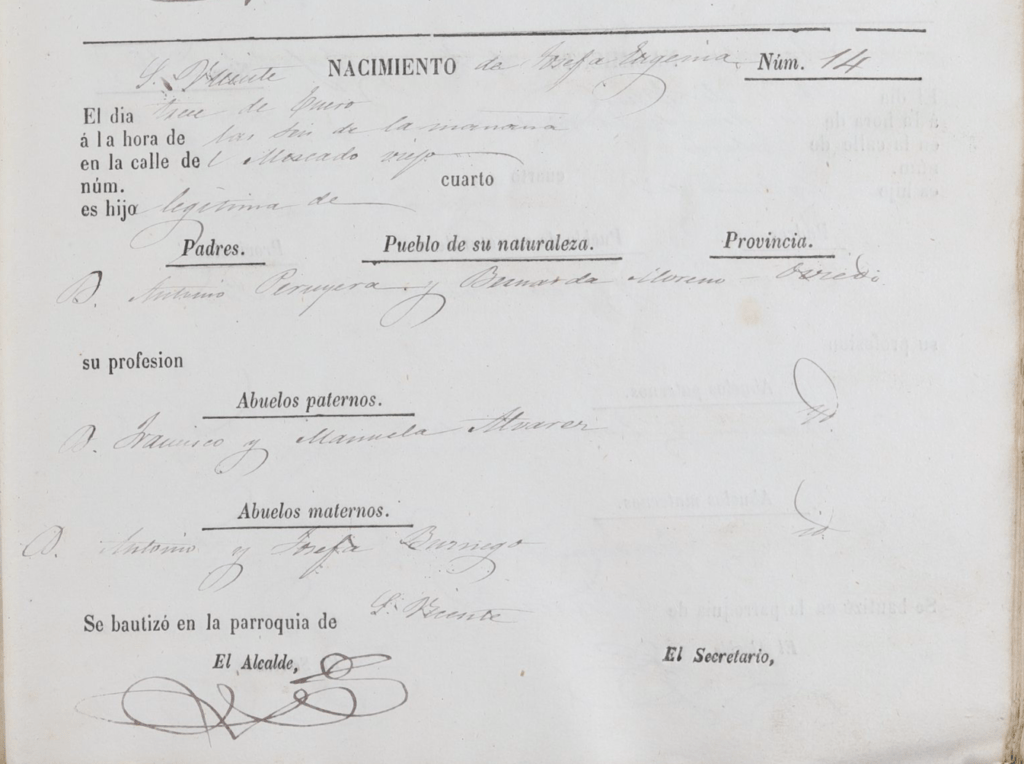 S. Vicente NACIMIENTO de Josefa Eugenia Núm. 14
El dia trece de Enero
á la hora de las seis de la mañana
en la calle del Mercado viejo
núm. cuarto
es hijo legitima de
Padres. Pueblo de su naturaleza. Provincia.
D. Antonio Peruyera y Bernarda Moreno - Oviedo
su profesion
Abuelos paternos.
D. Francisco y Manuela Alvarez id.
Abuelos maternos.
D. Antonio y Josefa id.
Se bautizó en la parroquia de S. Vicente
El Alcalde, El Secretario,